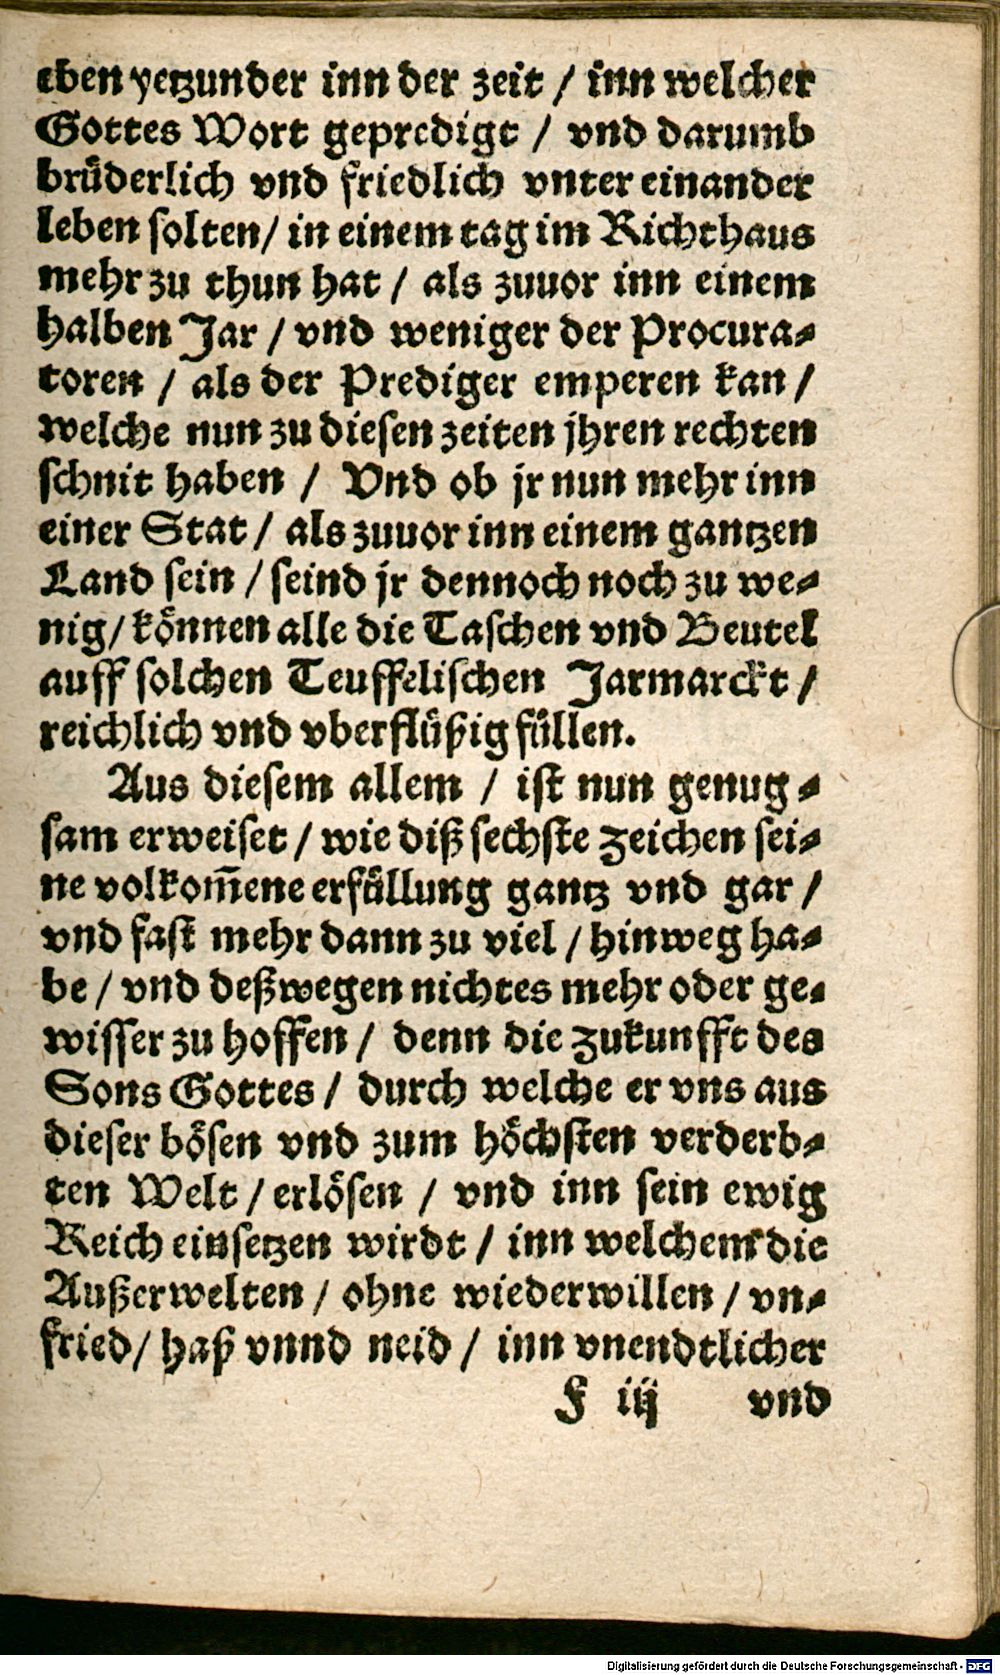 eben yetzunder inn der zeit / inn welcher
Gottes Wort gepredigt / vnd darumb
brüderlich vnd friedlich vnter einander
leben solten/ in einem tag im Richthaus
mehr zu thun hat / als zuuor inn einem
halben Jar / vnd weniger der Procura-
toren / als der Prediger emperen kan /
welche nun zu diesen zeiten jhren rechten
schnit haben / Vnd ob jr nun mehr inn
einer Stat / als zuuor inn einem gantzen
Land sein / seind jr dennoch noch zu we-
nig/ können alle die Taschen vnd Beutel
auff solchen Teuffelischen Jarmarckt /
reichlich vnd vberflüßig füllen.
Aus diesem allem / ist nun genug-
sam erweiset / wie diß sechste Zeichen sei-
ne volkom̄ene erfüllung gantz vnd gar /
vnd fast mehr dann zu viel / hinweg ha-
be / vnd deßwegen nichtes mehr oder ge-
wisser zu hoffen / denn die Zukunfft des
Sons Gottes / durch welche er vns aus
dieser bösen vnd zum höchsten verderb-
ten Welt / erlösen / vnd inn sein ewig
Reich einsetzen wirdt / inn welchem die
Außerwelten / ohne wiederwillen / vn-
fried/ haß vnnd neid / inn vnendtlicher
F iij vnd
Digitalisierung gefördert durch die Deutsche Forschungsgemeinschaft - DFG